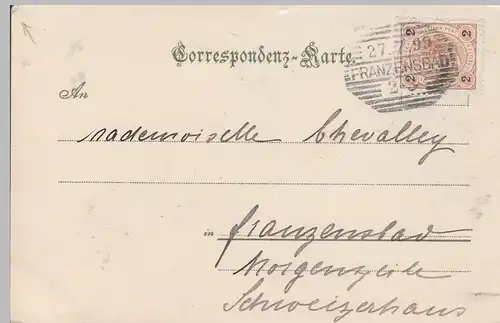 Correspondenz-Karte.
2 2
27 99
FRANZENSBAD
2 2
An
Mademoiselle Chevalley
in Franzensbad
Morgenzeile
Schweizerhaus